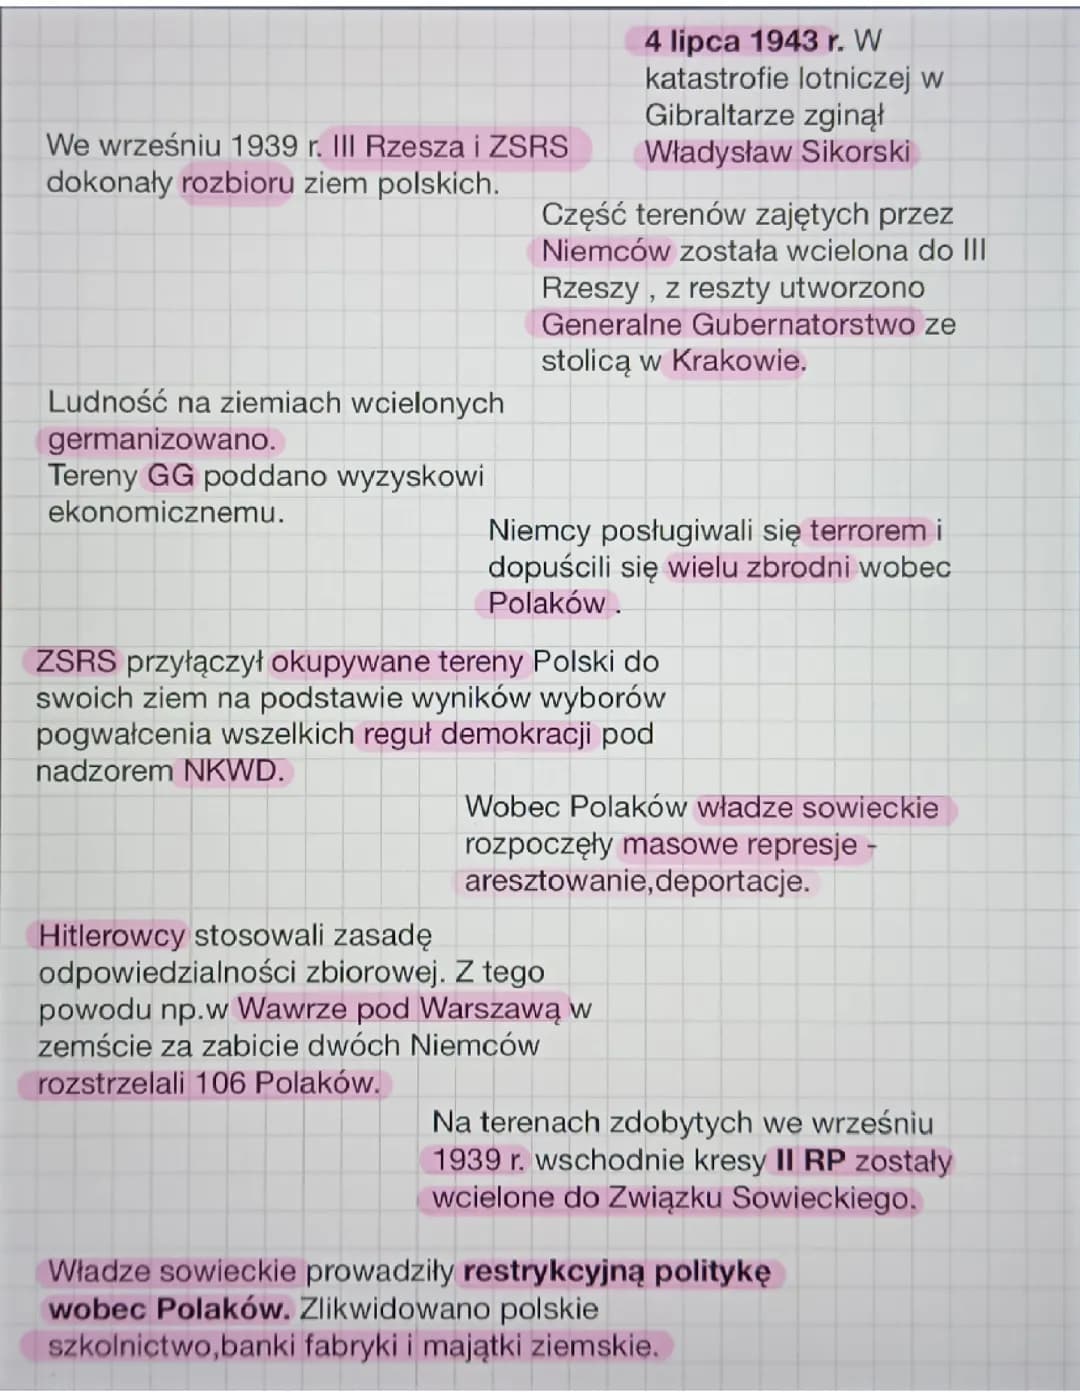 4 lipca 1943 r. W
katastrofie lotniczej w
Gibraltarze zginął
Władysław Sikorski
We wrześniu 1939 r. III Rzesza i ZSRS
dokonały rozbioru ziem polskich.
Część terenów zajętych przez
Niemców została wcielona do III
Rzeszy , z reszty utworzono
Generalne Gubernatorstwo ze
stolicą w Krakowie.
Ludność na ziemiach wcielonych
germanizowano.
Tereny GG poddano wyzyskowi
ekonomicznemu.
Niemcy posługiwali się terrorem i
dopuścili się wielu zbrodni wobec
Polaków .
ZSRS przyłączył okupywane tereny Polski do
swoich ziem na podstawie wyników wyborów
pogwałcenia wszelkich reguł demokracji pod
nadzorem NKWD.
Wobec Polaków władze sowieckie
rozpoczęły masowe represje -
aresztowanie,deportacje.
Hitlerowcy stosowali zasadę
odpowiedzialności zbiorowej. Z tego
powodu np.w Wawrze pod Warszawą w
zemście za zabicie dwóch Niemców
rozstrzelali 106 Polaków.
Na terenach zdobytych we wrześniu
1939 r. wschodnie kresy II RP zostały
wcielone do Związku Sowieckiego.
Władze sowieckie prowadziły restrykcyjną politykę
wobec Polaków. Zlikwidowano polskie
szkolnictwo,banki fabryki i majątki ziemskie.